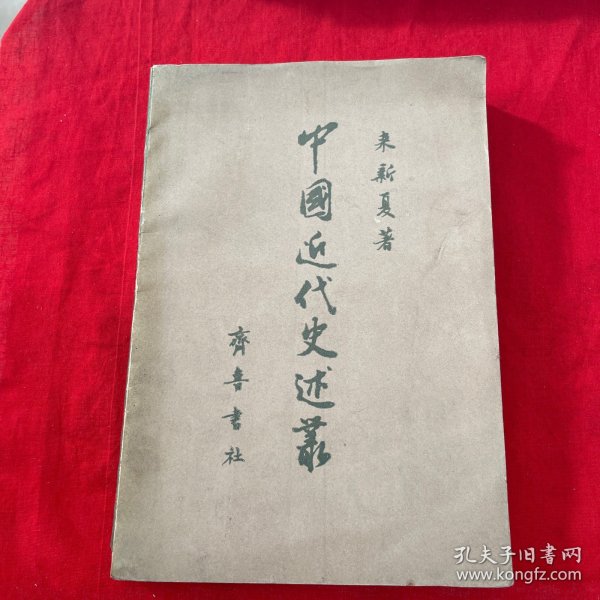 来新夏著
中國近代史述叢
齊魯書社
孔夫子旧書网
www.kongfz.com